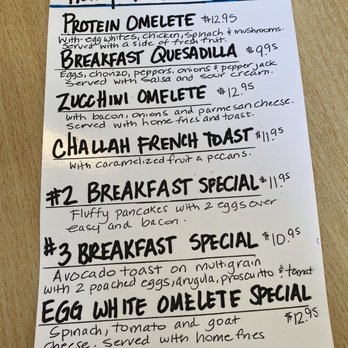 PROTEIN OMELETE $12.95
With egg whites, chicken, spinach & mushrooms.
Served with a side of fresh fruit.
BREAKFAST QUESADILLA $9.95
Eggs, chorizo, peppers, onions & pepper jack
Served with salsa and sour cream.
ZUCCHINI OMELETE $12.95
with bacon, onions and parmesan cheese.
Served with home fries and toast.
CHALLAH FRENCH TOAST $11.95
with caramelized fruit & pecans.
#2 BREAKFAST SPECIAL $11.95
Fluffy pancakes with 2 eggs over
easy and bacon.
#3 BREAKFAST SPECIAL $10.95
Avocado toast on multigrain
with 2 poached eggs, arugula, prosciutto & tomat
EGG WHITE OMELETE SPECIAL
$12.95
Spinach, tomato and goat
cheese. Served with home fries